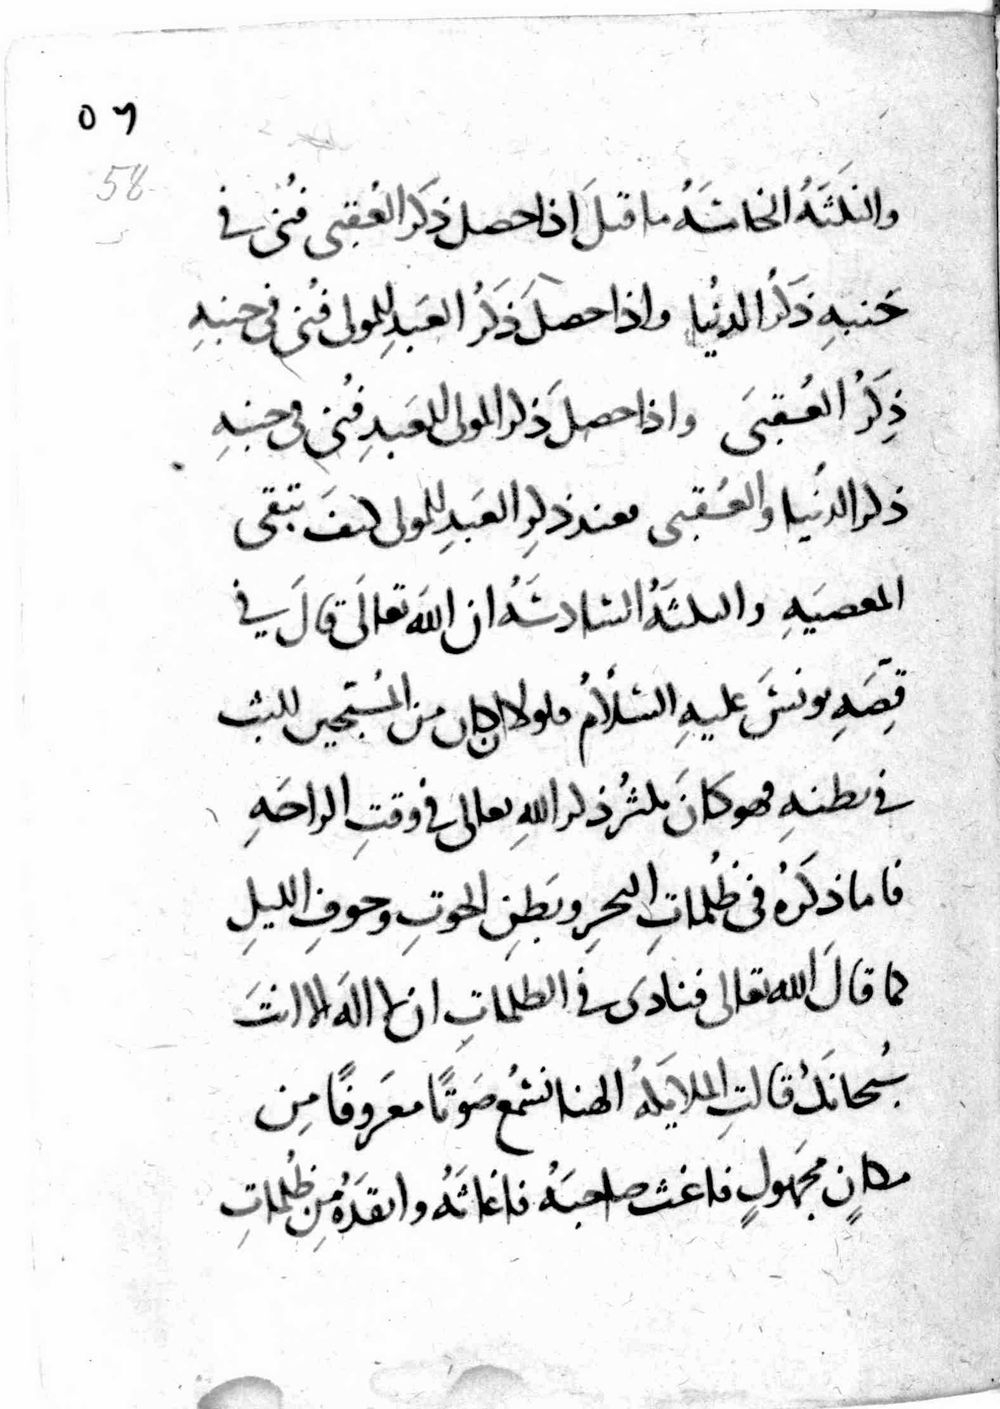 ٥٦
58
والنكتَةُ الخامسَةُ ما قيلَ اذا حصل ذكَر العُقبى فُنى فى
جَنبِهِ ذكَرُ الدنُيا واذا حصلَ ذكَرُ العَبدِ للمولى فُنى فى جنبِهِ
ذِكَرُ العُقبَى واذا حصلَ ذكر المولى للعَبدِ فُنى فى جنبِهِ
ذكر الدُنيا والعُقبى فعند ذكرِ العَبدِ للمولى كيفَ تبقى
المعصيَةِ والنكتَةُ السَّادسَةُ ان اللَّهَ تعالَى قالَ فى
قِصَّةِ يونسَ عليهِ السَّلاَمُ فلولا انه كان من المُسَبّحين للبث
فى بطنهِ فهو كانَ يكثرُ ذكر اللهِ تعالى فى وقتِ الراحَةِ
فاما ذكَرهُ فى ظُلماتِ البحرِ وبَطنِ الحوتِ وجوفِ الليلِ
كما قالَ الله تعالى فنادى فى الظلماتِ ان لا الَه الا انتَ
سُبحانكَ قالتِ الملايكَةُ الهنا نسمُع صَوتًا معَروفًا مِن
مكانٍ مجَهولٍ فاغث صاحبَهُ فاغاثَهُ وانقذَهُ مِن ظُلماتِ